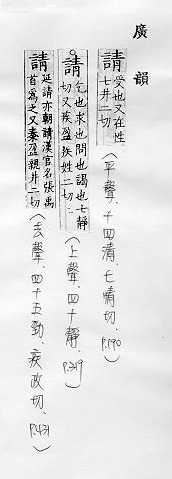 廣韻
請 受也又在性
七井二切
(平聲、十四清、七情切、P.190)
請 乞也求也問也謁也七靜
切又疾盈疾姓二切
(上聲、四十靜、P.319)
請 延請亦朝請漢官名張禹
首爲之又秦盈親井二切
(去聲、四十五勁、疾政切、P.431)